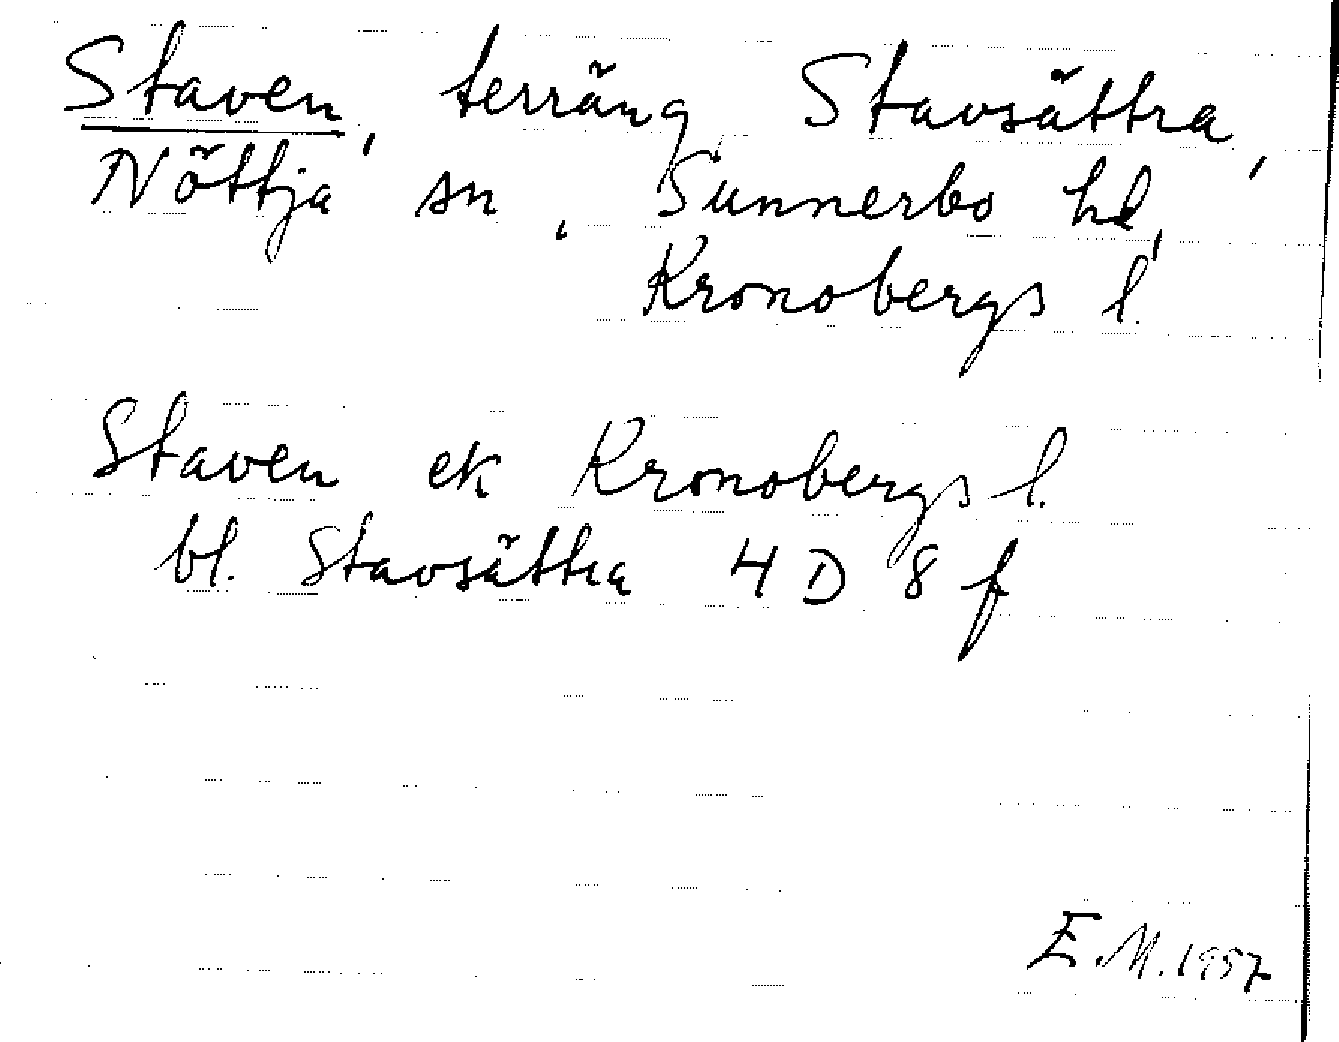 Staven, terräng Stavsättra,
Nöttja sn, Sunnerbo hd,
Kronobergs l.
Staven ek Kronobergs l.
bl. Stavsättra 4 D 8 f
E.M. 1957